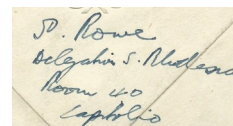 P. Rowe
Delegation S. Rhodesia
Room 40
Capitolio